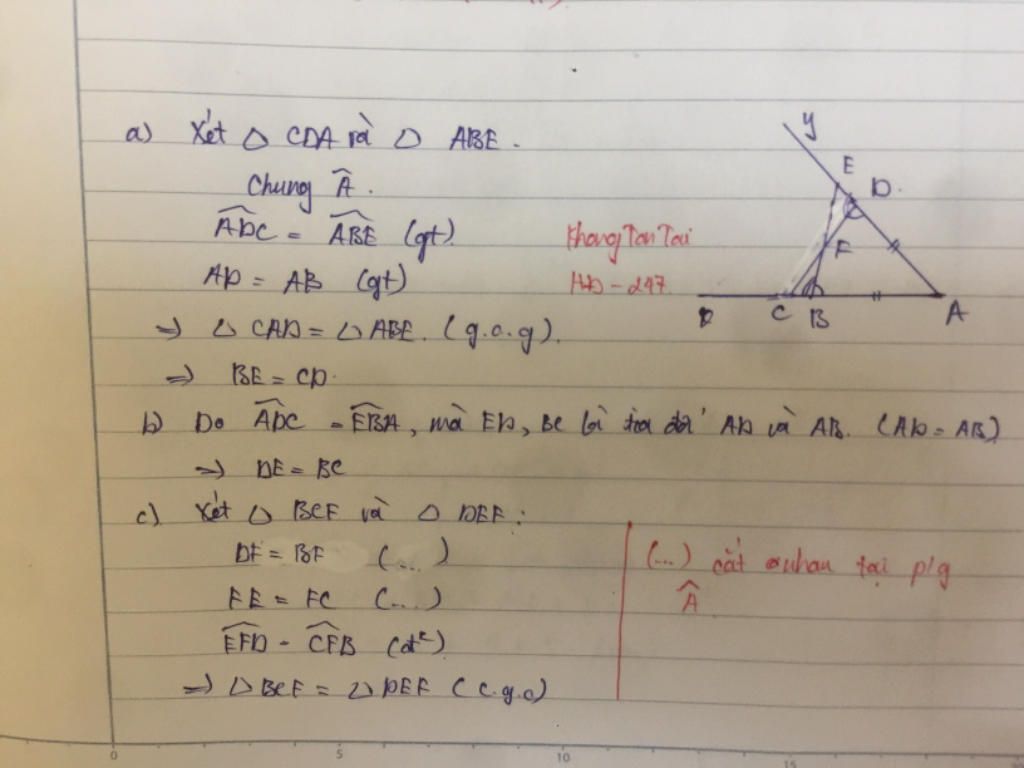 a) Xét △ CDA và △ ABE.
Chung Â.
ADC = ABE (gt)
AD = AB (gt)
=> △ CAD = △ ABE. (g.c.g).
=> BE = CD.
b) Do ADC = EBA, mà ED, BC là AD và AB. (AD = AB)
=> DE = BC
c) Xét △ BCF và △ DEF:
DF = BF (...)
FE = FC (...)
EFD = CFB (đđ)
=> △ BCF = △ DEF (c.g.c)
KhongTonTai
HD-247
(...) cắt nhau tại p/g
Â
y
E
D.
F
C B A